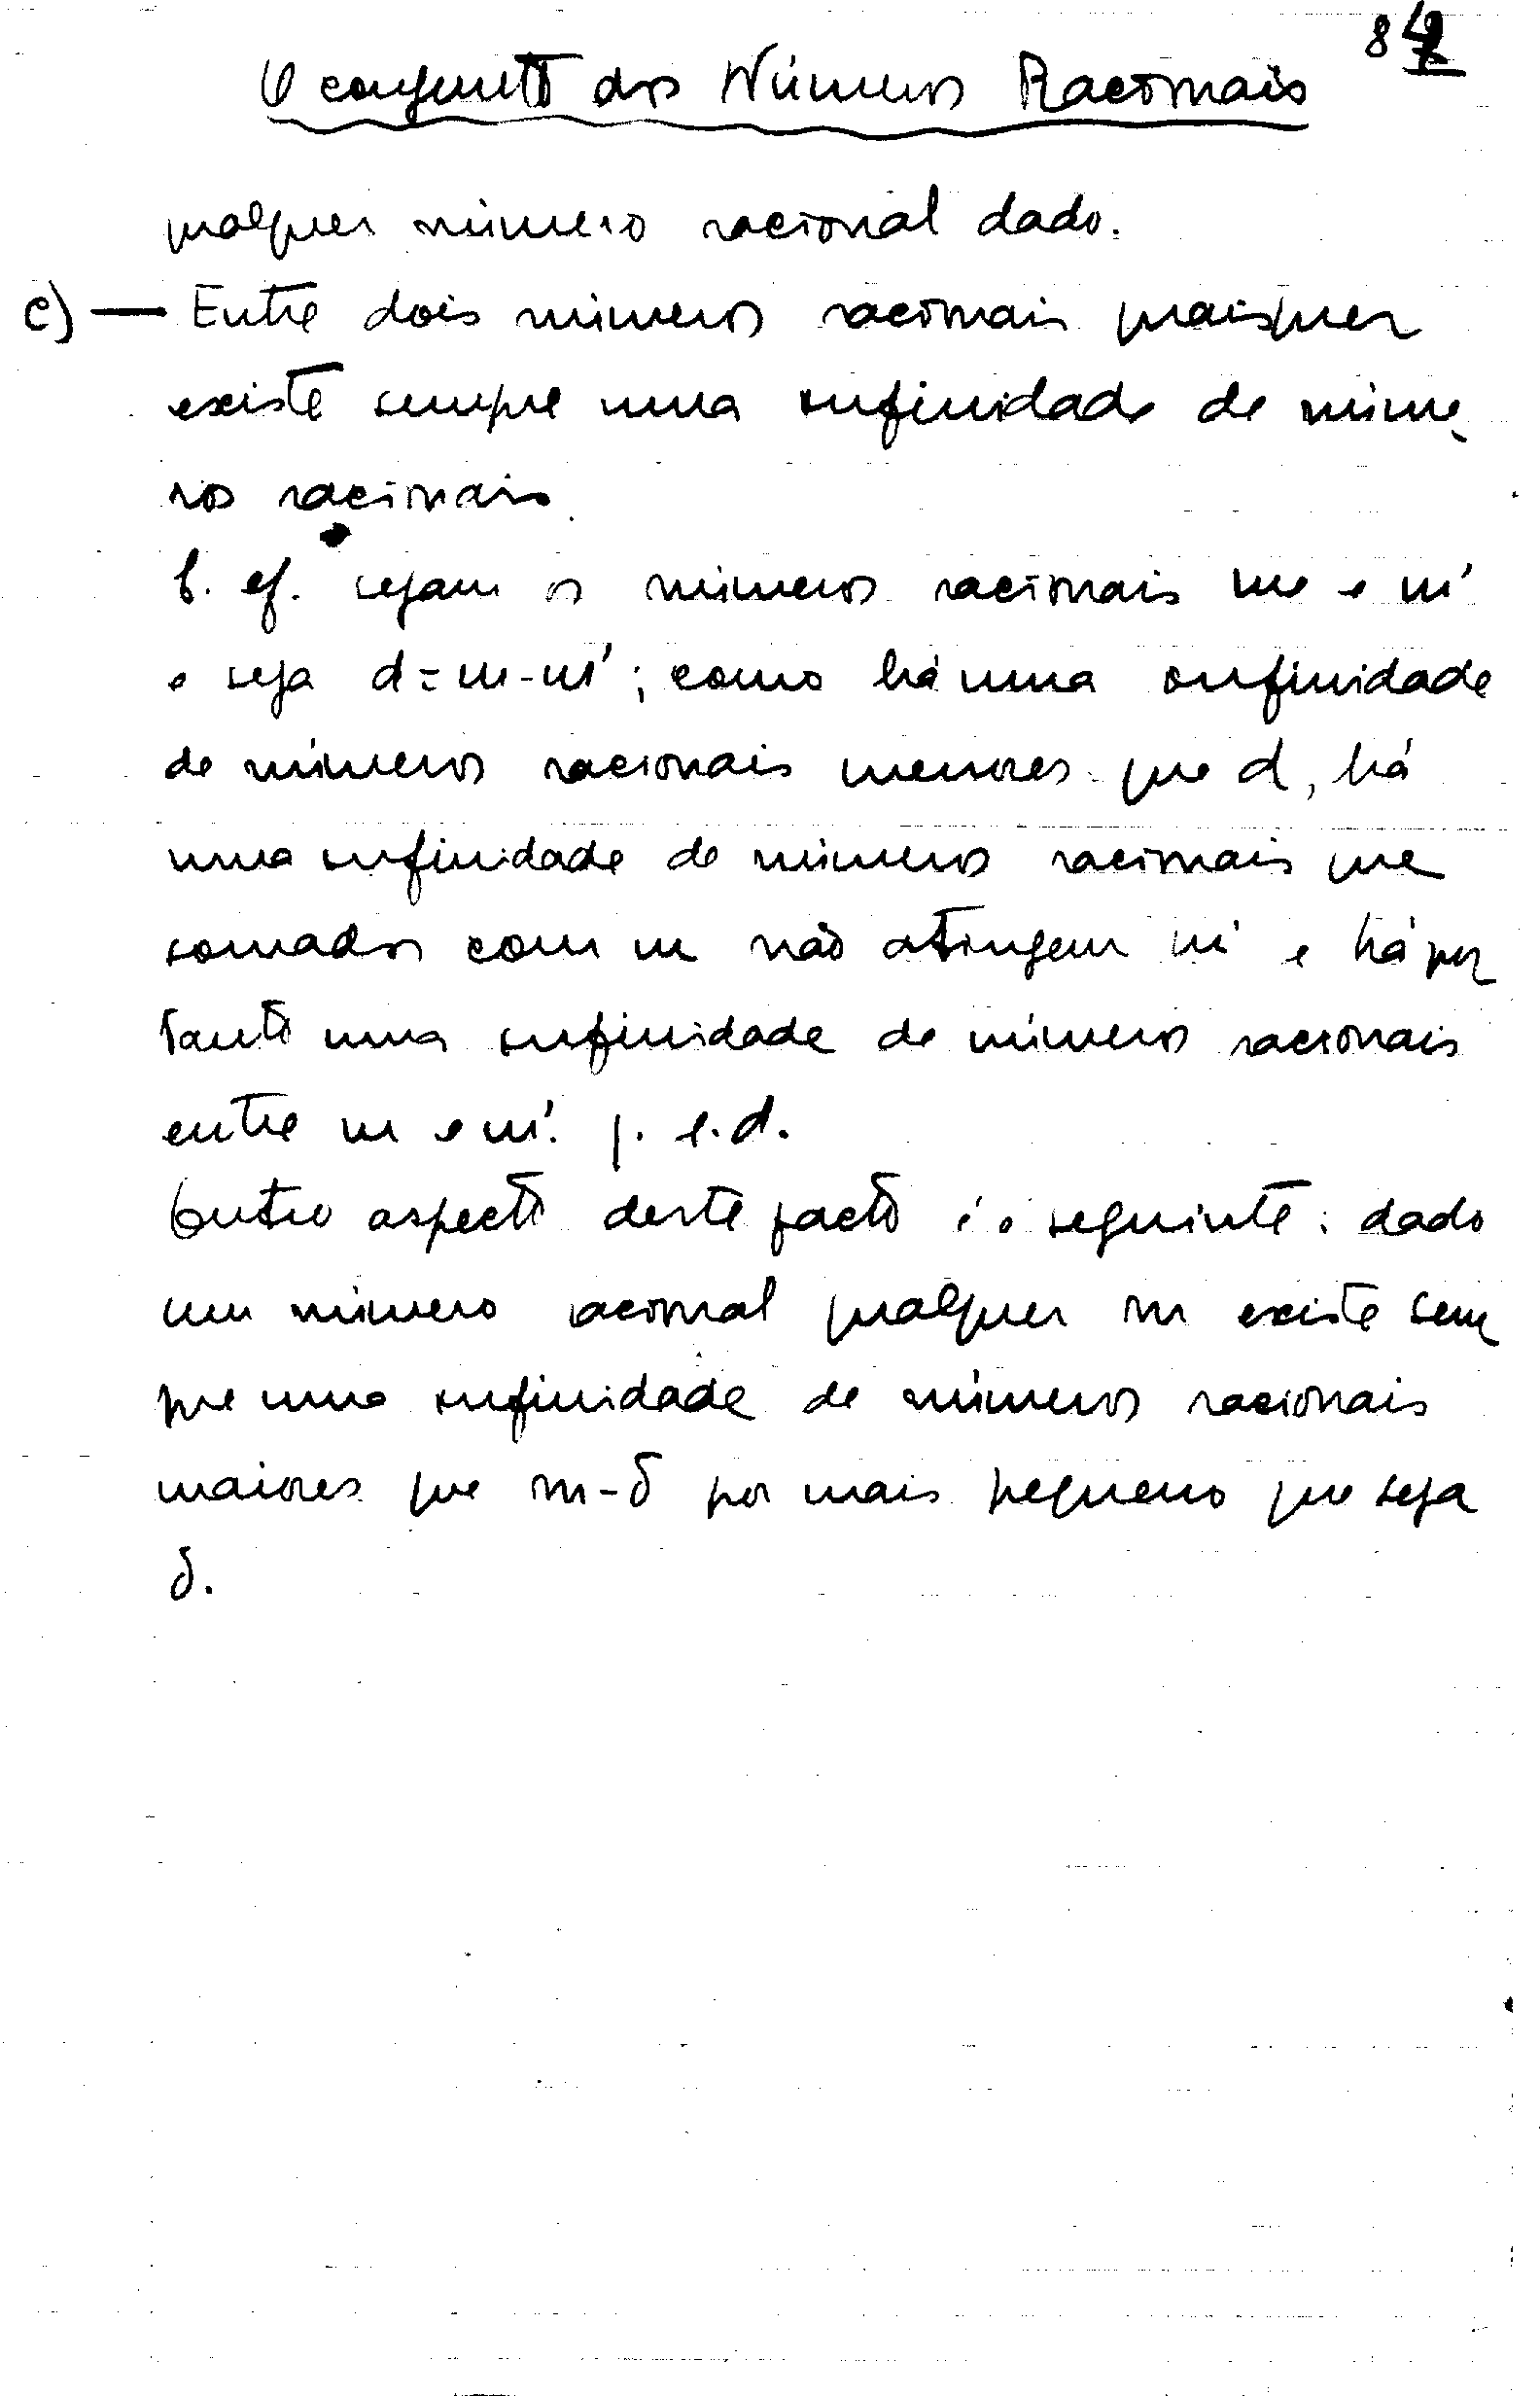 84
O conjunto dos Números Racionais
qualquer número racional dado.
c) — Entre dois números racionais quaisquer
existe sempre uma infinidade de núme-
ros racionais.
D. ef. sejam os números racionais m e m'
e seja d = m - m'; como há uma infinidade
de números racionais menores que d, há
uma infinidade de números racionais que
somados com m não atingem m' e há por
tanto uma infinidade de números racionais
entre m e m'. q. e. d.
Outro aspecto deste facto é o seguinte: dado
um número racional qualquer m existe sem
pre uma infinidade de números racionais
maiores que m-δ por mais pequeno que seja
δ.